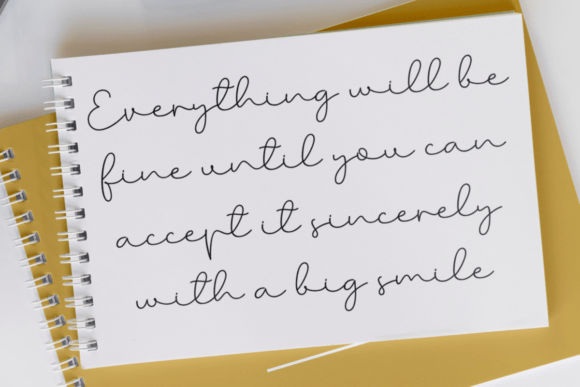 Everything will be
fine until you can
accept it sincerely
with a big smile